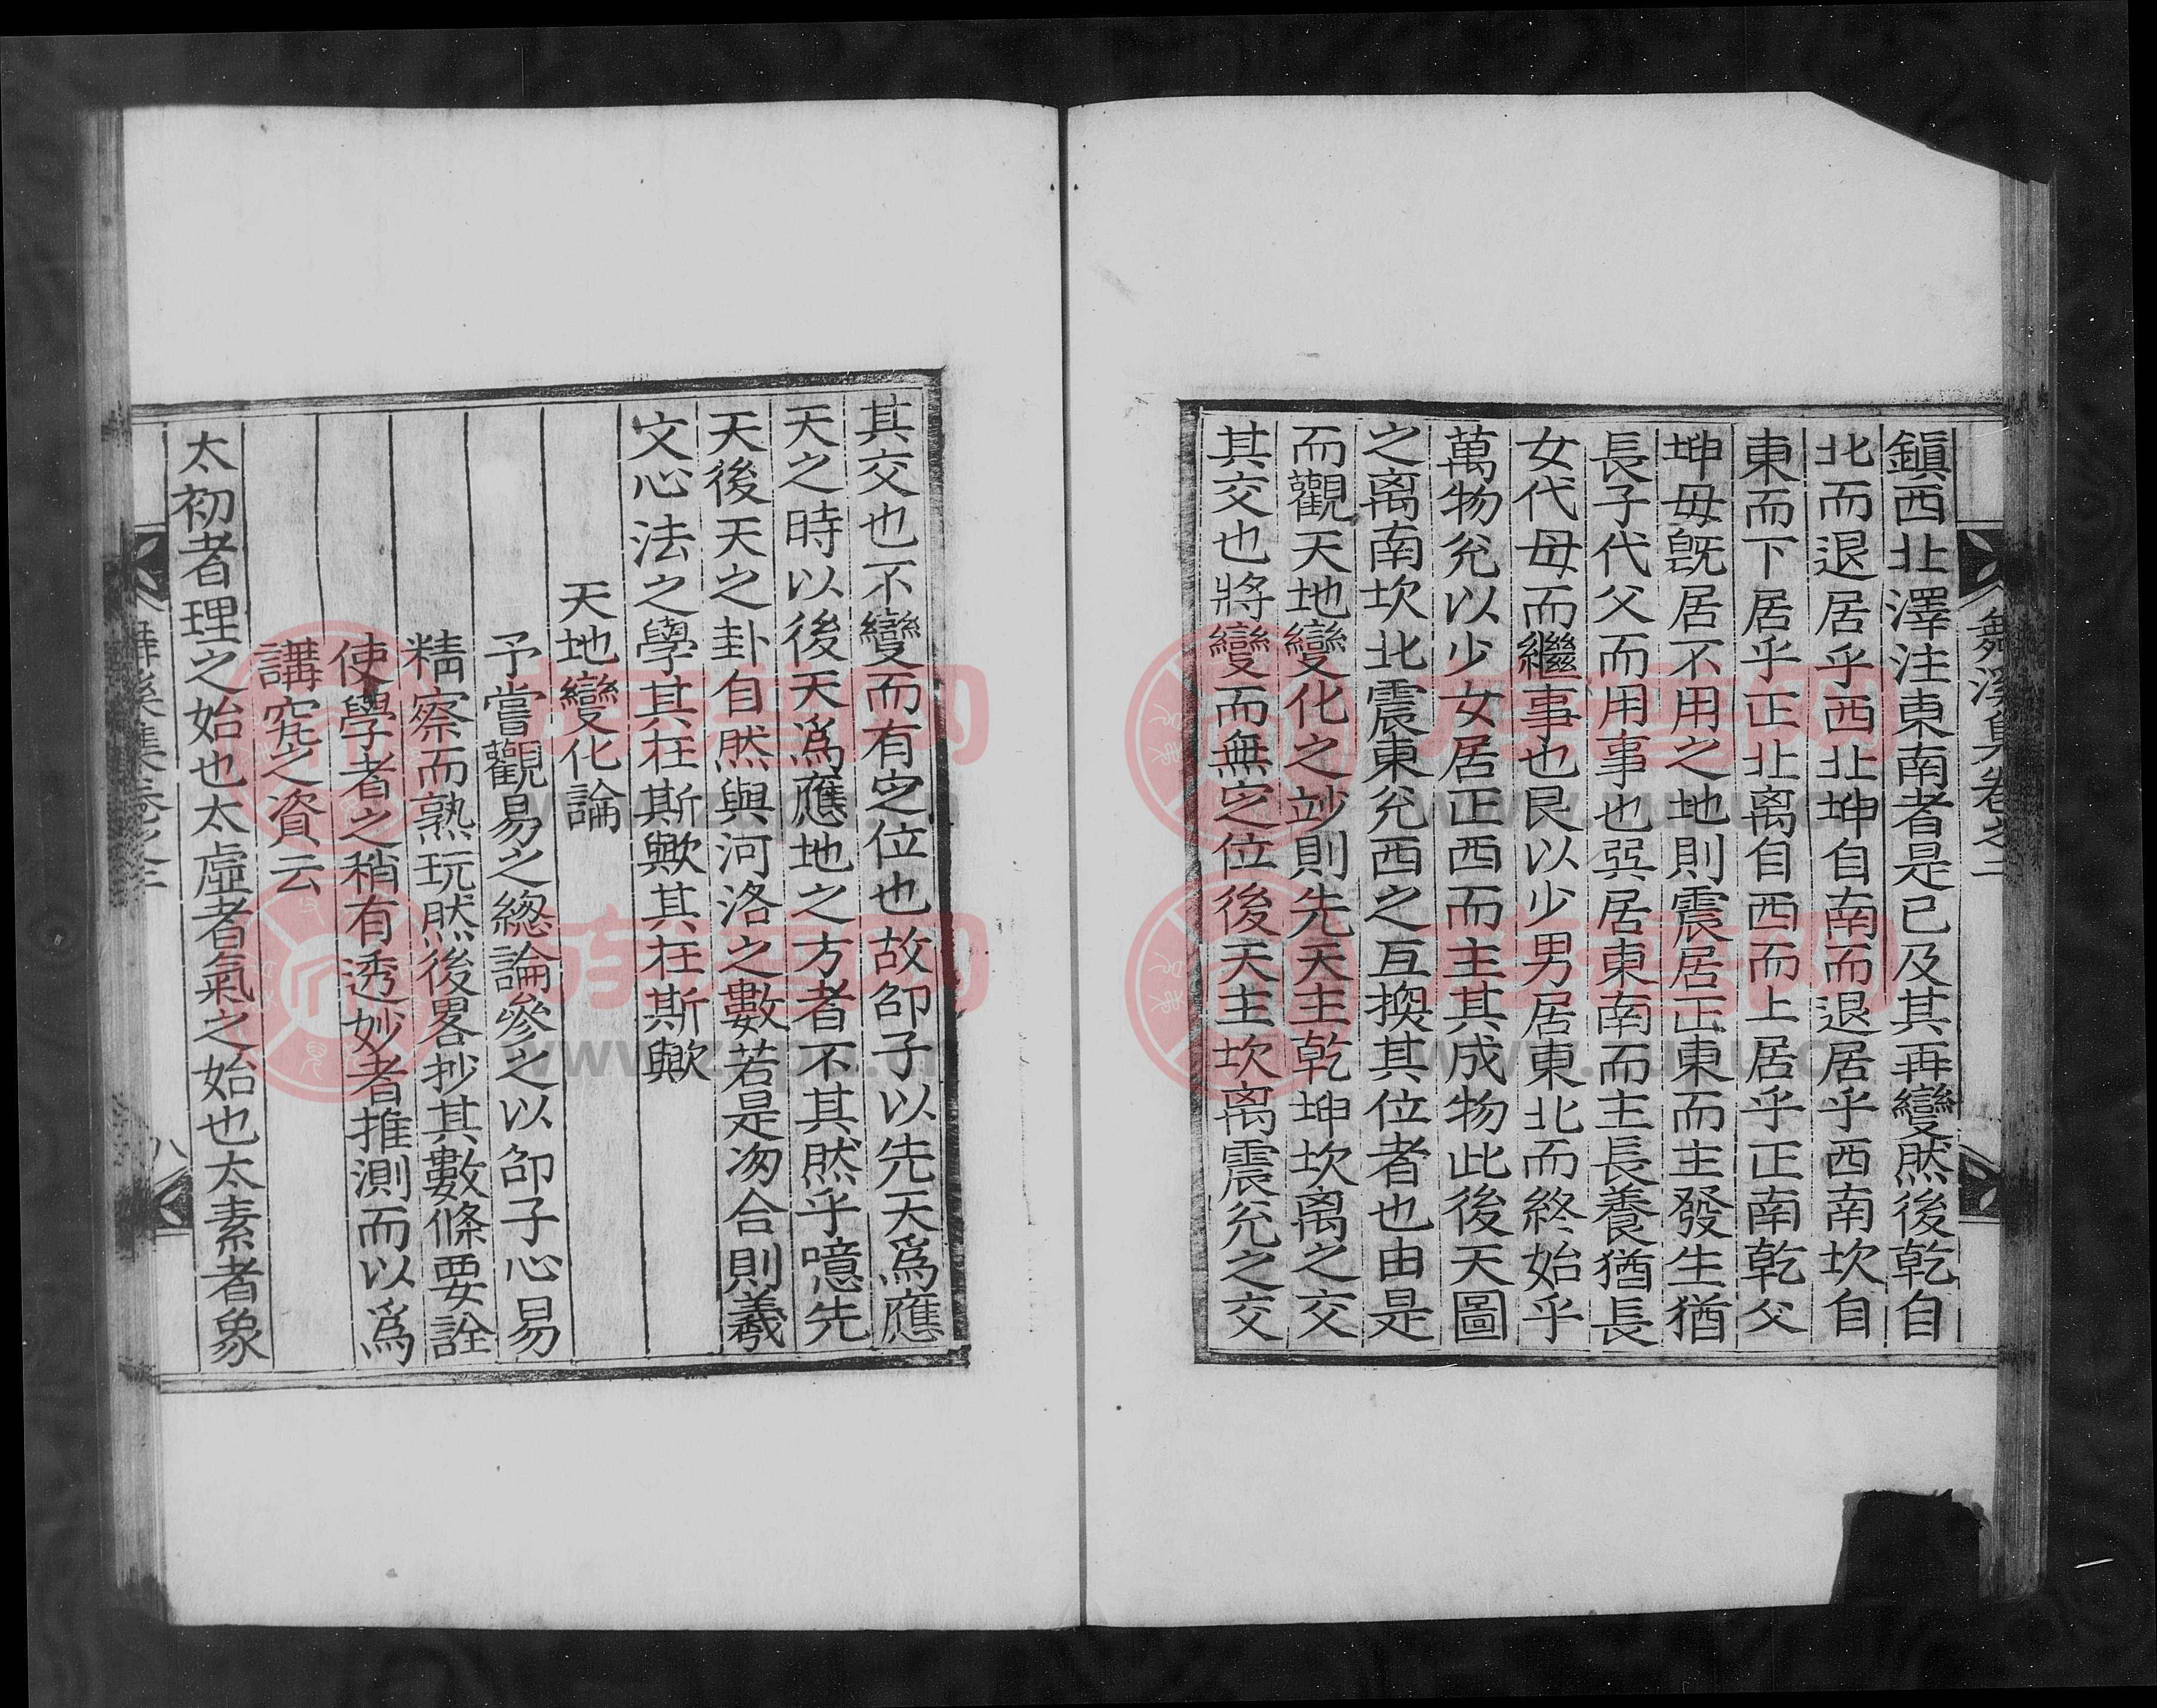 舞溪集卷之二
鎭西北澤注東南者是已及其再變然後乾自
北而退居乎西北坤自南而退居乎西南坎自
東而下居乎正北离自西而上居乎正南乾父
坤母旣居不用之地則震居正東而主發生猶
長子代父而用事也巽居東南而主長養猶長
女代母而繼事也艮以少男居東北而終始乎
萬物兊以少女居正西而主其成物此後天圖
之离南坎北震東兊西之互換其位者也由是
而觀天地變化之竗則先天主乾坤坎离之交
其交也將變而無定位後天主坎离震兊之交
其交也不變而有定位也故邵子以先天爲應
天之時以後天爲應地之方者不其然乎噫先
天後天之卦自然與河洛之數若是沕合則羲
文心法之學其在斯歟其在斯歟
天地變化論
予嘗觀易之緫論參之以邵子心易
精察而熟玩然後畧抄其數條要詮
使學者之稍有透妙者推測而以爲
講究之資云
太初者理之始也太虛者氣之始也太素者象
舞溪集卷之二
八